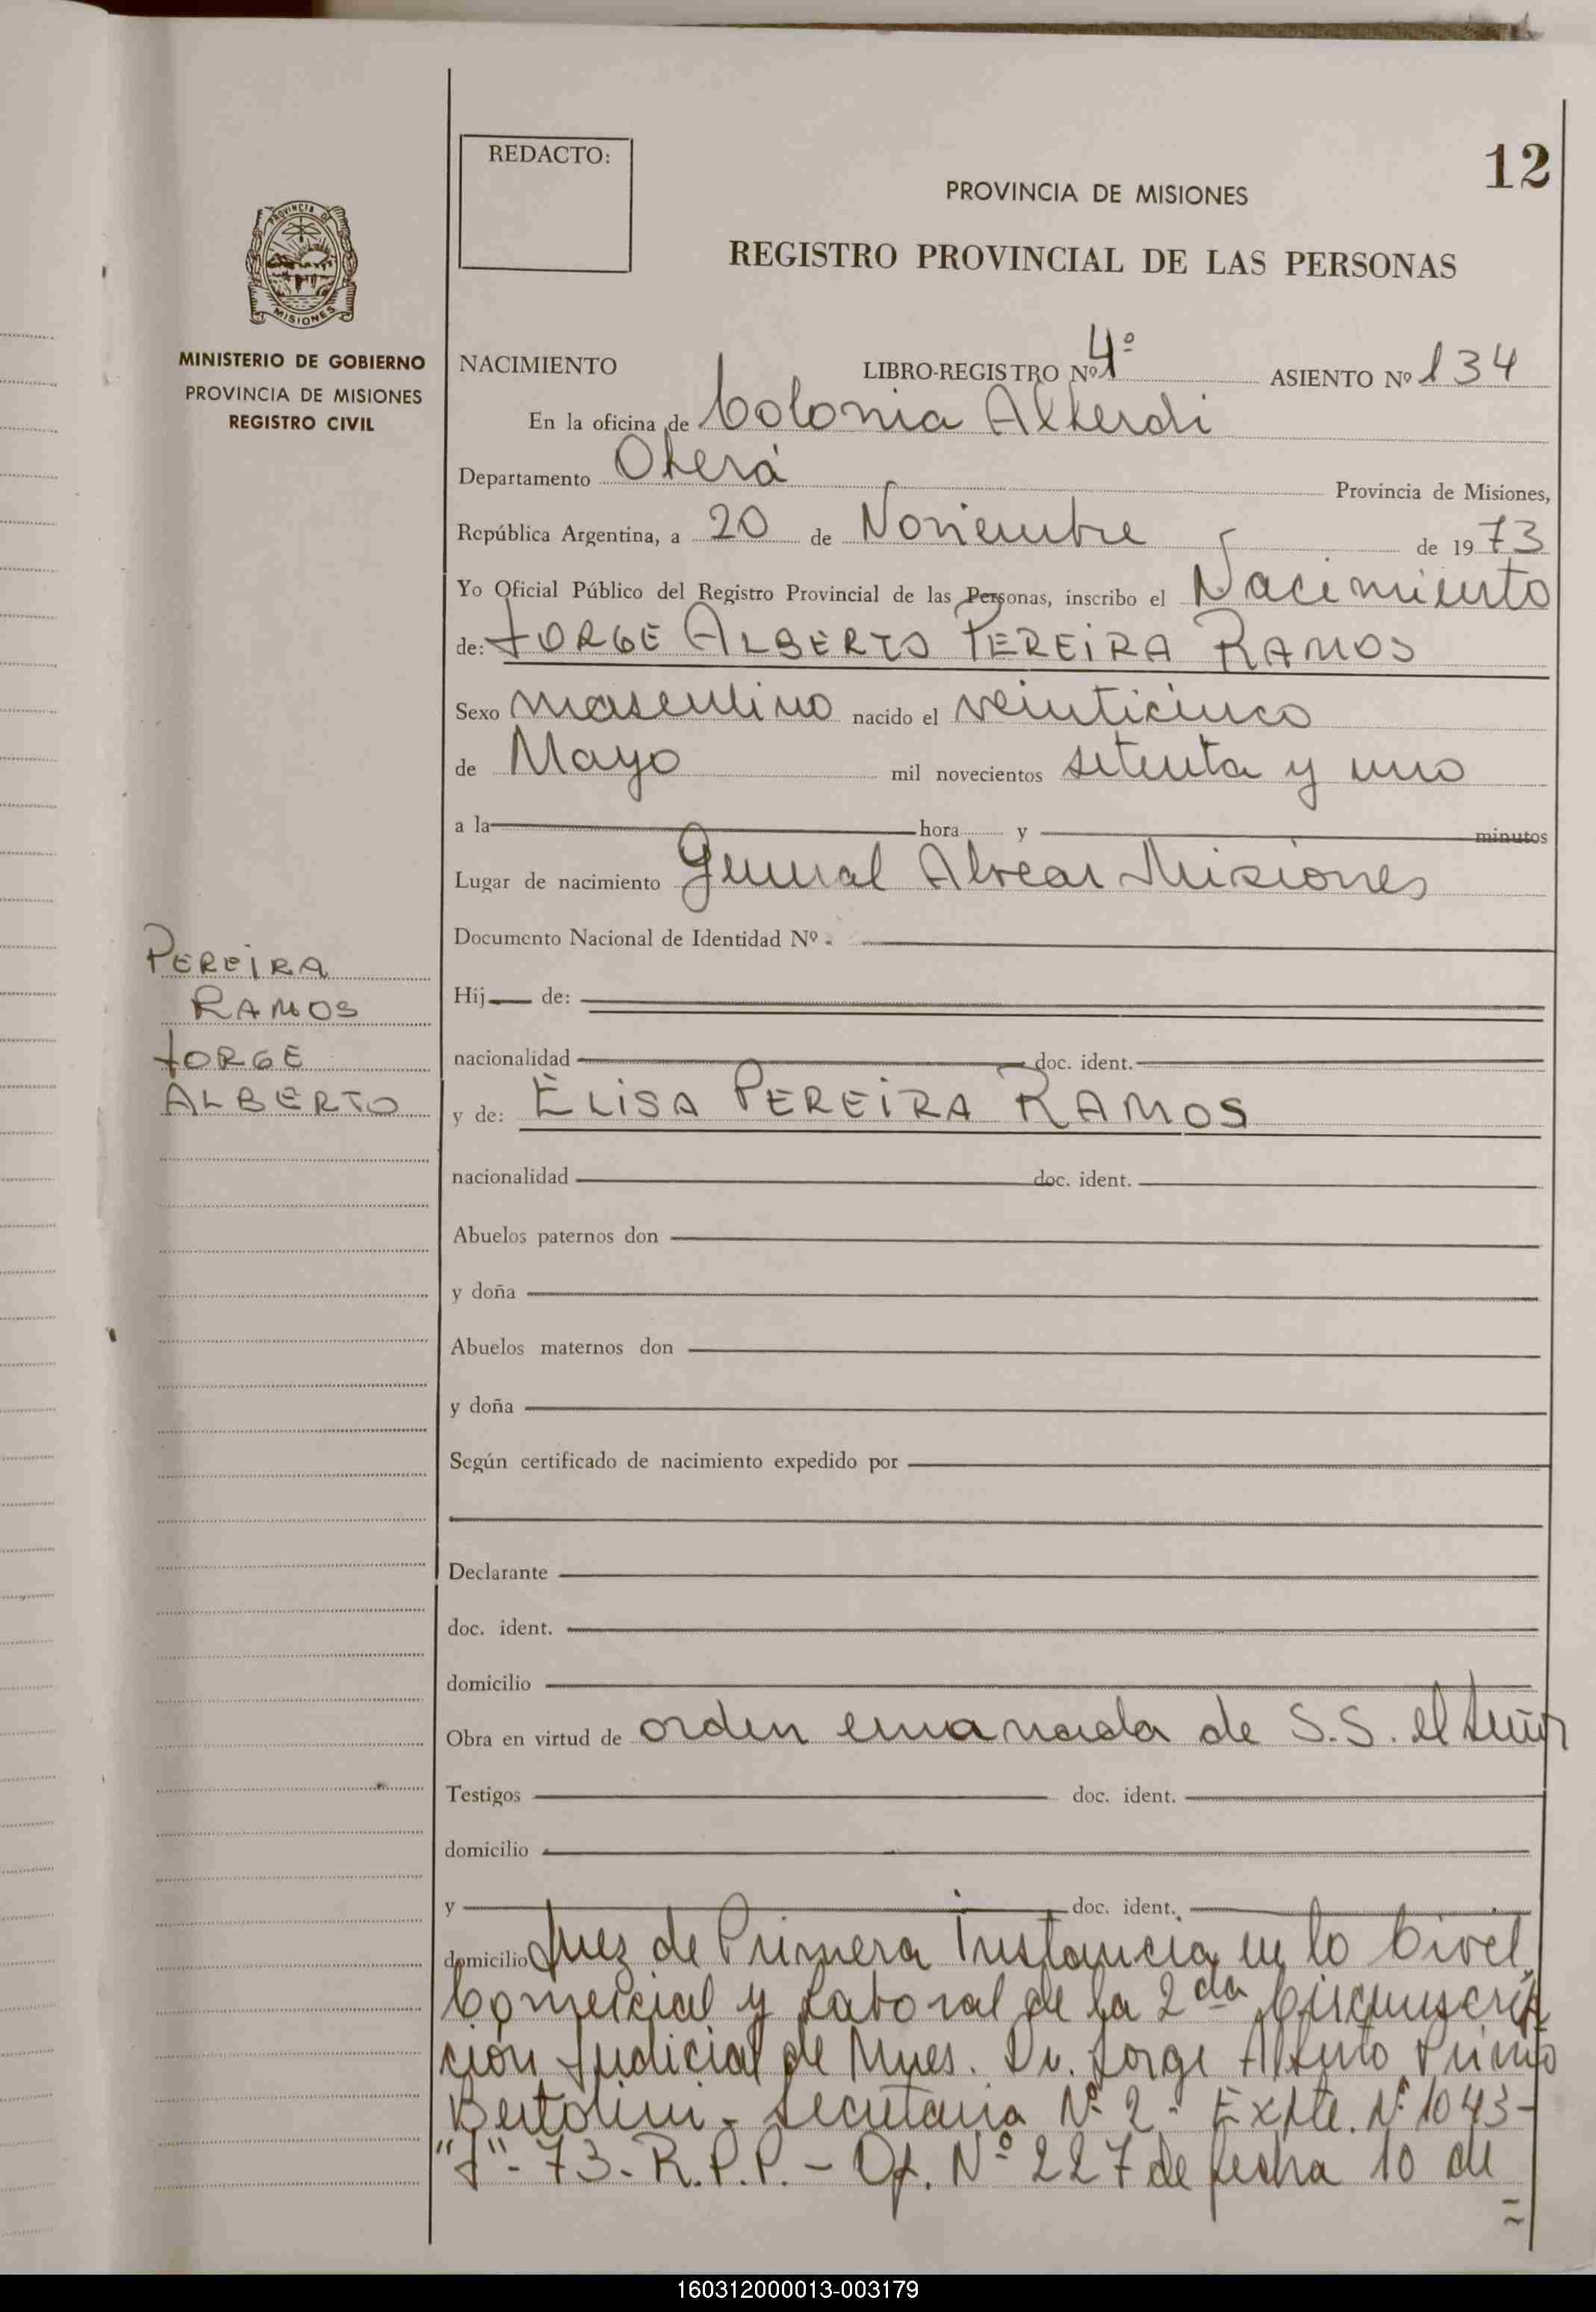 REDACTO:
12
PROVINCIA DE MISIONES
REGISTRO PROVINCIAL DE LAS PERSONAS
PROVINCIA DE
MISIONES
MINISTERIO DE GOBIERNO
PROVINCIA DE MISIONES
REGISTRO CIVIL
NACIMIENTO LIBRO-REGISTRO Nº 4º ASIENTO Nº 134
En la oficina de Colonia Alberdi
Departamento Oberá Provincia de Misiones,
República Argentina, a 20 de Noviembre de 1973
Yo Oficial Público del Registro Provincial de las Personas, inscribo el Nacimiento
de: JORGE ALBERTO PEREIRA RAMOS
Sexo masculino nacido el veinticinco
de Mayo mil novecientos setenta y uno
a la hora y minutos
Lugar de nacimiento General Alvear Misiones
Documento Nacional de Identidad Nº
PEREIRA
RAMOS
JORGE
ALBERTO
Hij de:
nacionalidad doc. ident.
y de: ELISA PEREIRA RAMOS
nacionalidad doc. ident.
Abuelos paternos don
y doña
Abuelos maternos don
y doña
Según certificado de nacimiento expedido por
Declarante
doc. ident.
domicilio
Obra en virtud de orden emanada de S.S. el Señor
Testigos doc. ident.
domicilio
y doc. ident.
domicilio Juez de Primera Instancia en lo Civil,
Comercial y Laboral de la 2da Circunscrip
ción Judicial de Mnes. Dr. Jorge Primo
Bertolini - Secretaria Nº 2 - Expte. Nº 1043-
"J"- 73- R.P.P. - Of. Nº 227 de fecha 10 de
160312000013-003179